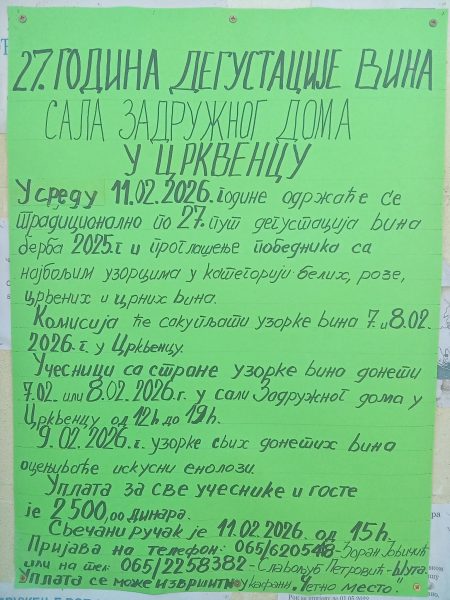 27. ГОДИНА ДЕГУСТАЦИЈЕ ВИНА
САЛА ЗАДРУЖНОГ ДОМА
У ЦРКВЕНЦУ
У среду 11.02.2026. године одржаће се
традиционално по 27. пут дегустација вина
берба 2025.г. и проглашење победника са
најбољим узорцима у категорији белих, розе,
црвених и црних вина.
Комисија ће сакупљати узорке вина 7. и 8.02.
2026.г. у Црквенцу.
Учесници са стране узорке вина донети
7.02. или 8.02.2026.г. у сали Задружног дома у
Црквенцу од 12h до 19h.
9.02.2026.г. узорке свих донетих вина
оцењиваће искусни енолози.
Уплата за све учеснике и госте
је 2500,00 динара.
Свечани ручак је 11.02.2026. од 15h.
Пријава на телефон: 065/620548-Зоран Јовичић
или на тел. 065/2258382-Славољуб Петровић-Шута.
Уплата се може извршити у кафани "Четно место."